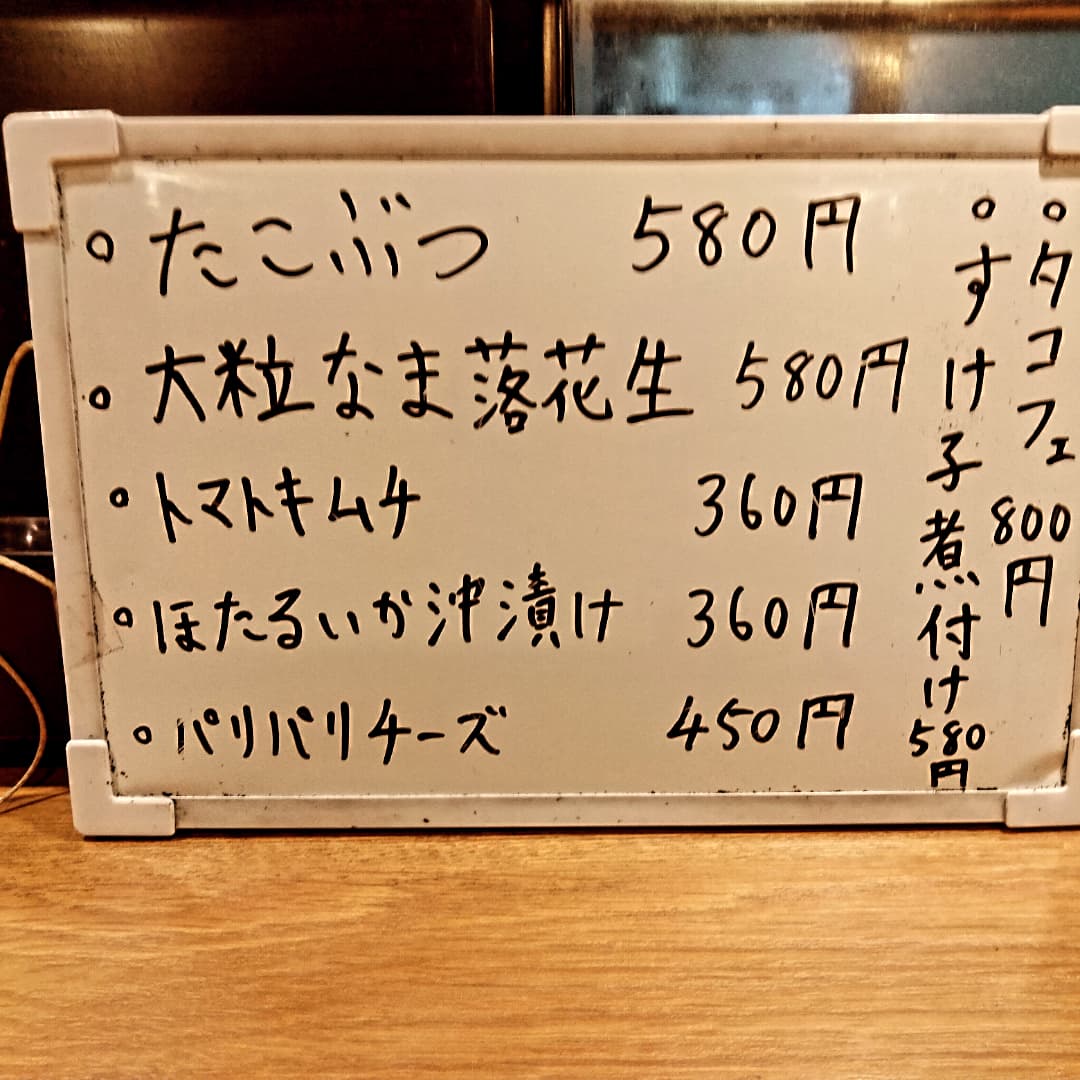 ○たこぶつ 580円
○大粒なま落花生 580円
○トマトキムチ 360円
○ほたるいか沖漬け 360円
○パリパリチーズ 450円
○タコフェ 800円
○すけ子煮付け 580円